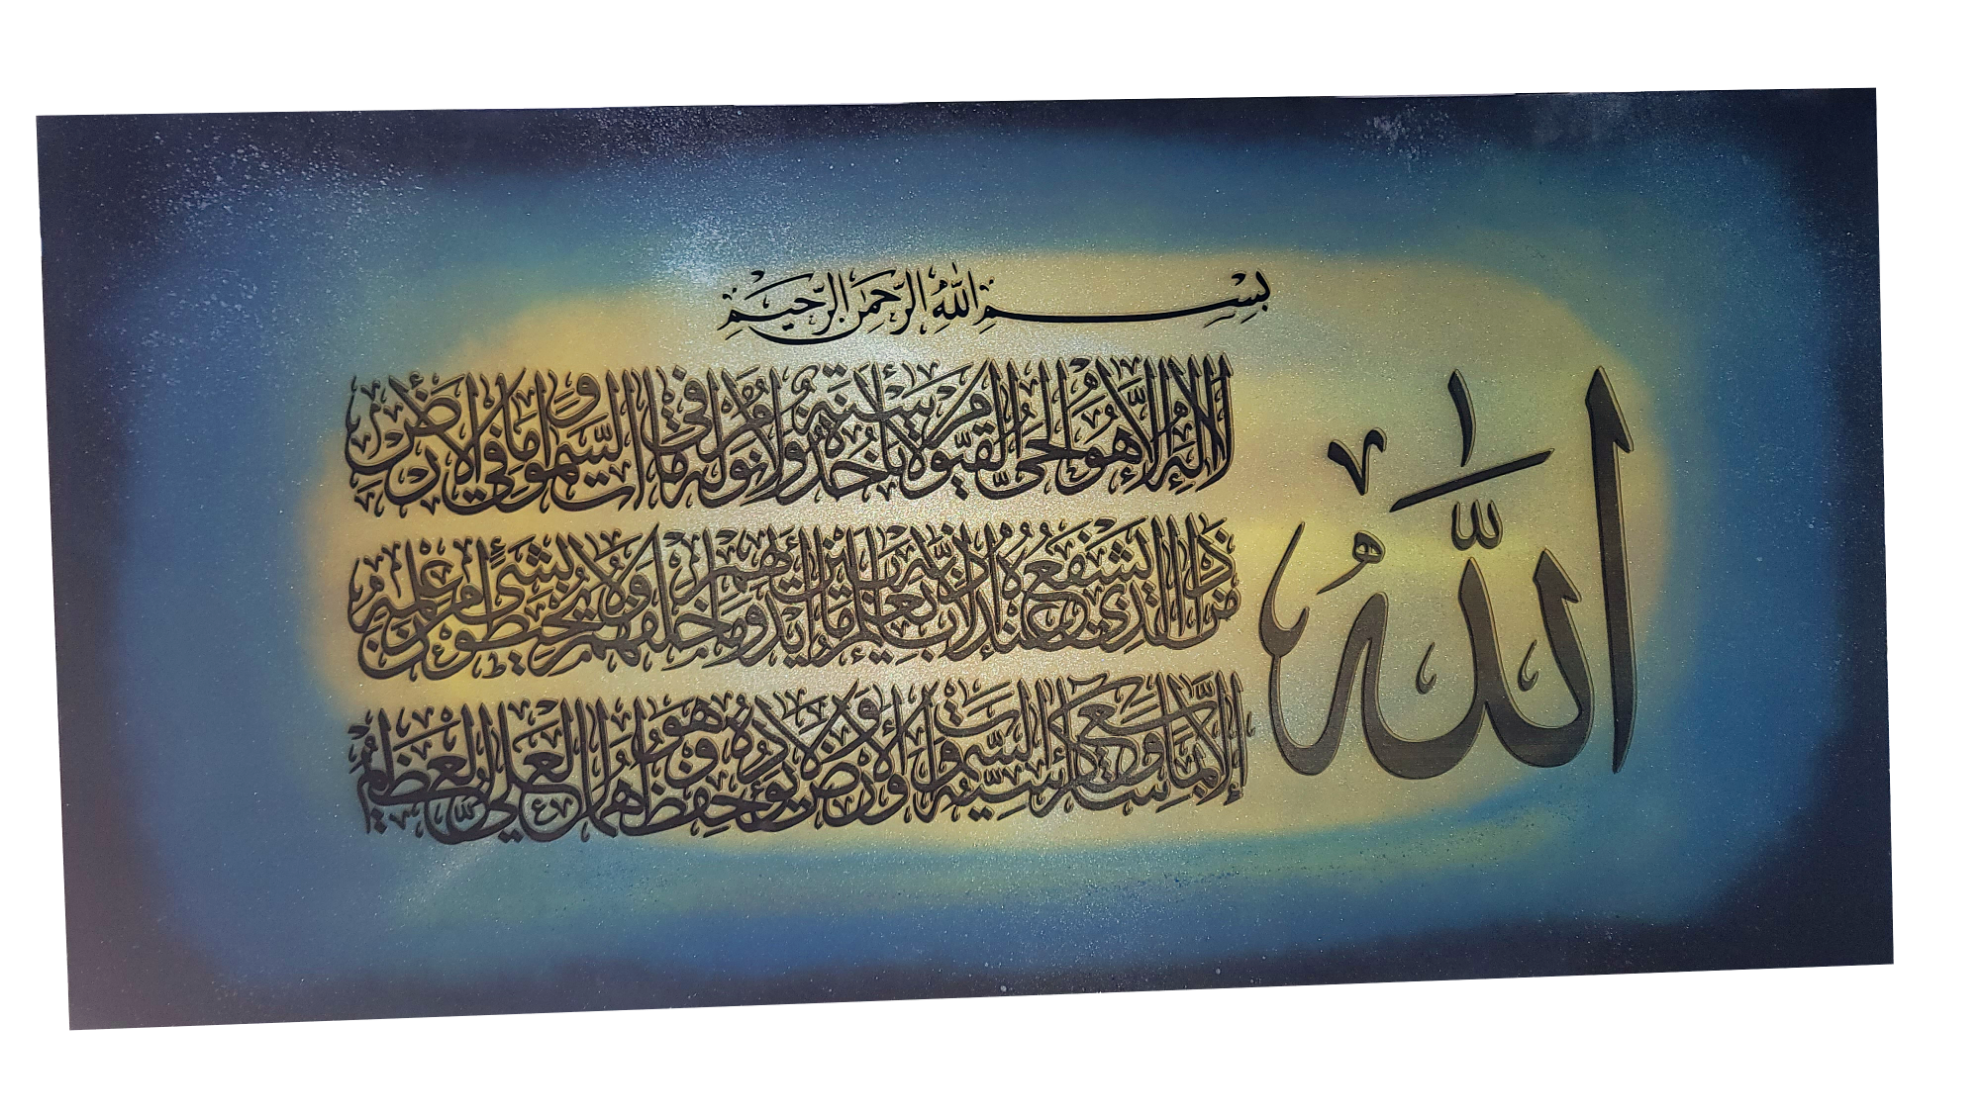 بِسْمِ اللَّهِ الرَّحْمَنِ الرَّحِيمِ
اللَّهُ
لَا إِلَهَ إِلَّا هُوَ الْحَيُّ الْقَيُّومُ لَا تَأْخُذُهُ سِنَةٌ وَلَا نَوْمٌ لَهُ مَا فِي السَّمَوَاتِ وَمَا فِي الْأَرْضِ
مَنْ ذَا الَّذِي يَشْفَعُ عِنْدَهُ إِلَّا بِإِذْنِهِ يَعْلَمُ مَا بَيْنَ أَيْدِيهِمْ وَمَا خَلْفَهُمْ وَلَا يُحِيطُونَ بِشَيْءٍ مِنْ عِلْمِهِ
إِلَّا بِمَا شَاءَ وَسِعَ كُرْسِيُّهُ السَّمَوَاتِ وَالْأَرْضَ وَلَا يَئُودُهُ حِفْظُهُمَا وَهُوَ الْعَلِيُّ الْعَظِيمُ